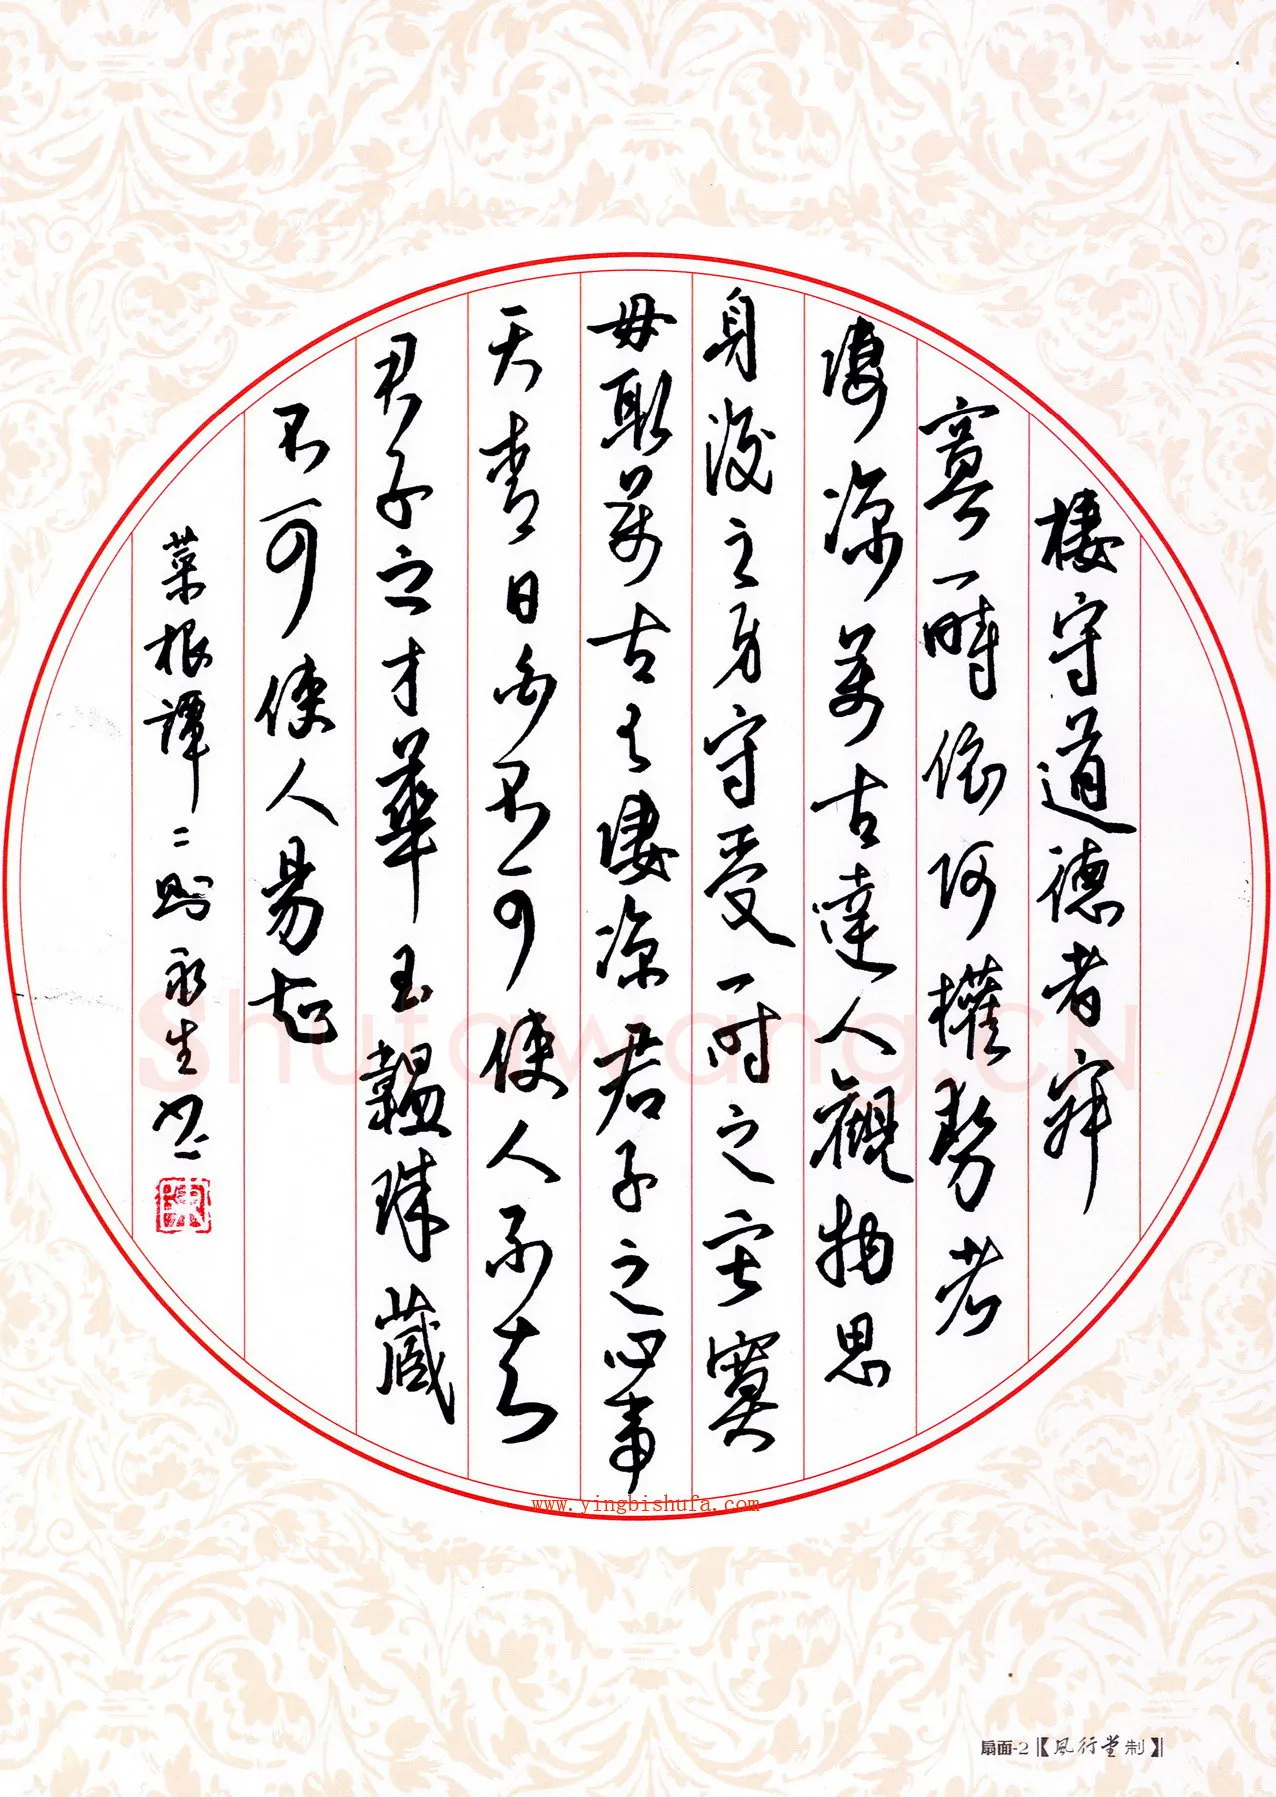 棲守道德者寂
寞一時依阿權勢者
凄涼萬古達人觀物思
身後之身寧受一时之寂寞
毋取萬古之凄涼君子之心事
天青日白不可使人不知
君子之才華玉韞珠藏
不可使人易知
菜根譚二則永生书
ShufaWang.CN
www.yingbishufa.com
扇面-2【風行堂制】